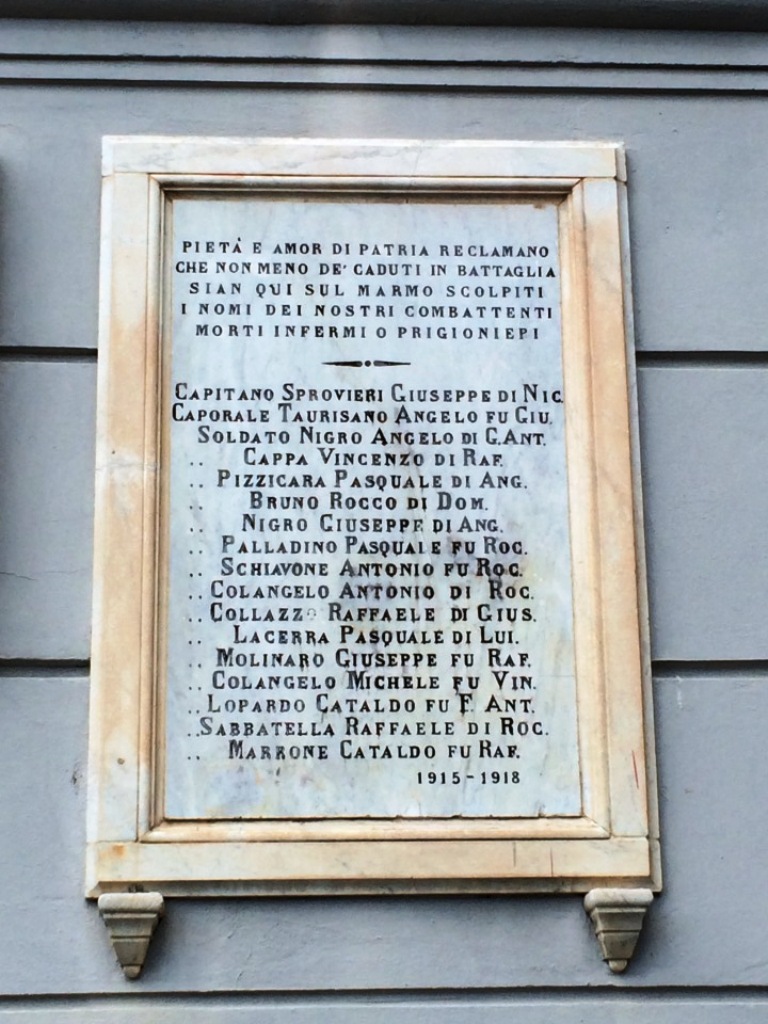 PIETÀ E AMOR DI PATRIA RECLAMANO
CHE NON MENO DE' CADUTI IN BATTAGLIA
SIAN QUI SUL MARMO SCOLPITI
I NOMI DEI NOSTRI COMBATTENTI
MORTI INFERMI O PRIGIONIEPI
CAPITANO SPROVIERI GIUSEPPE DI NIC.
CAPORALE TAURISANO ANGELO FU GIU.
SOLDATO NIGRO ANGELO DI G.ANT.
.. CAPPA VINCENZO DI RAF.
.. PIZZICARA PASQUALE DI ANG.
.. BRUNO ROCCO DI DOM.
.. NIGRO GIUSEPPE DI ANG.
.. PALLADINO PASQUALE FU ROC.
.. SCHIAVONE ANTONIO FU ROC.
.. COLANGELO ANTONIO DI ROC.
.. COLLAZZO RAFFAELE DI GIUS.
.. LACERRA PASQUALE DI LUI.
.. MOLINARO GIUSEPPE FU RAF.
.. COLANGELO MICHELE FU VIN.
.. LOPARDO CATALDO FU F. ANT.
.. SABBATELLA RAFFAELE DI ROC.
.. MARRONE CATALDO FU RAF.
1915-1918